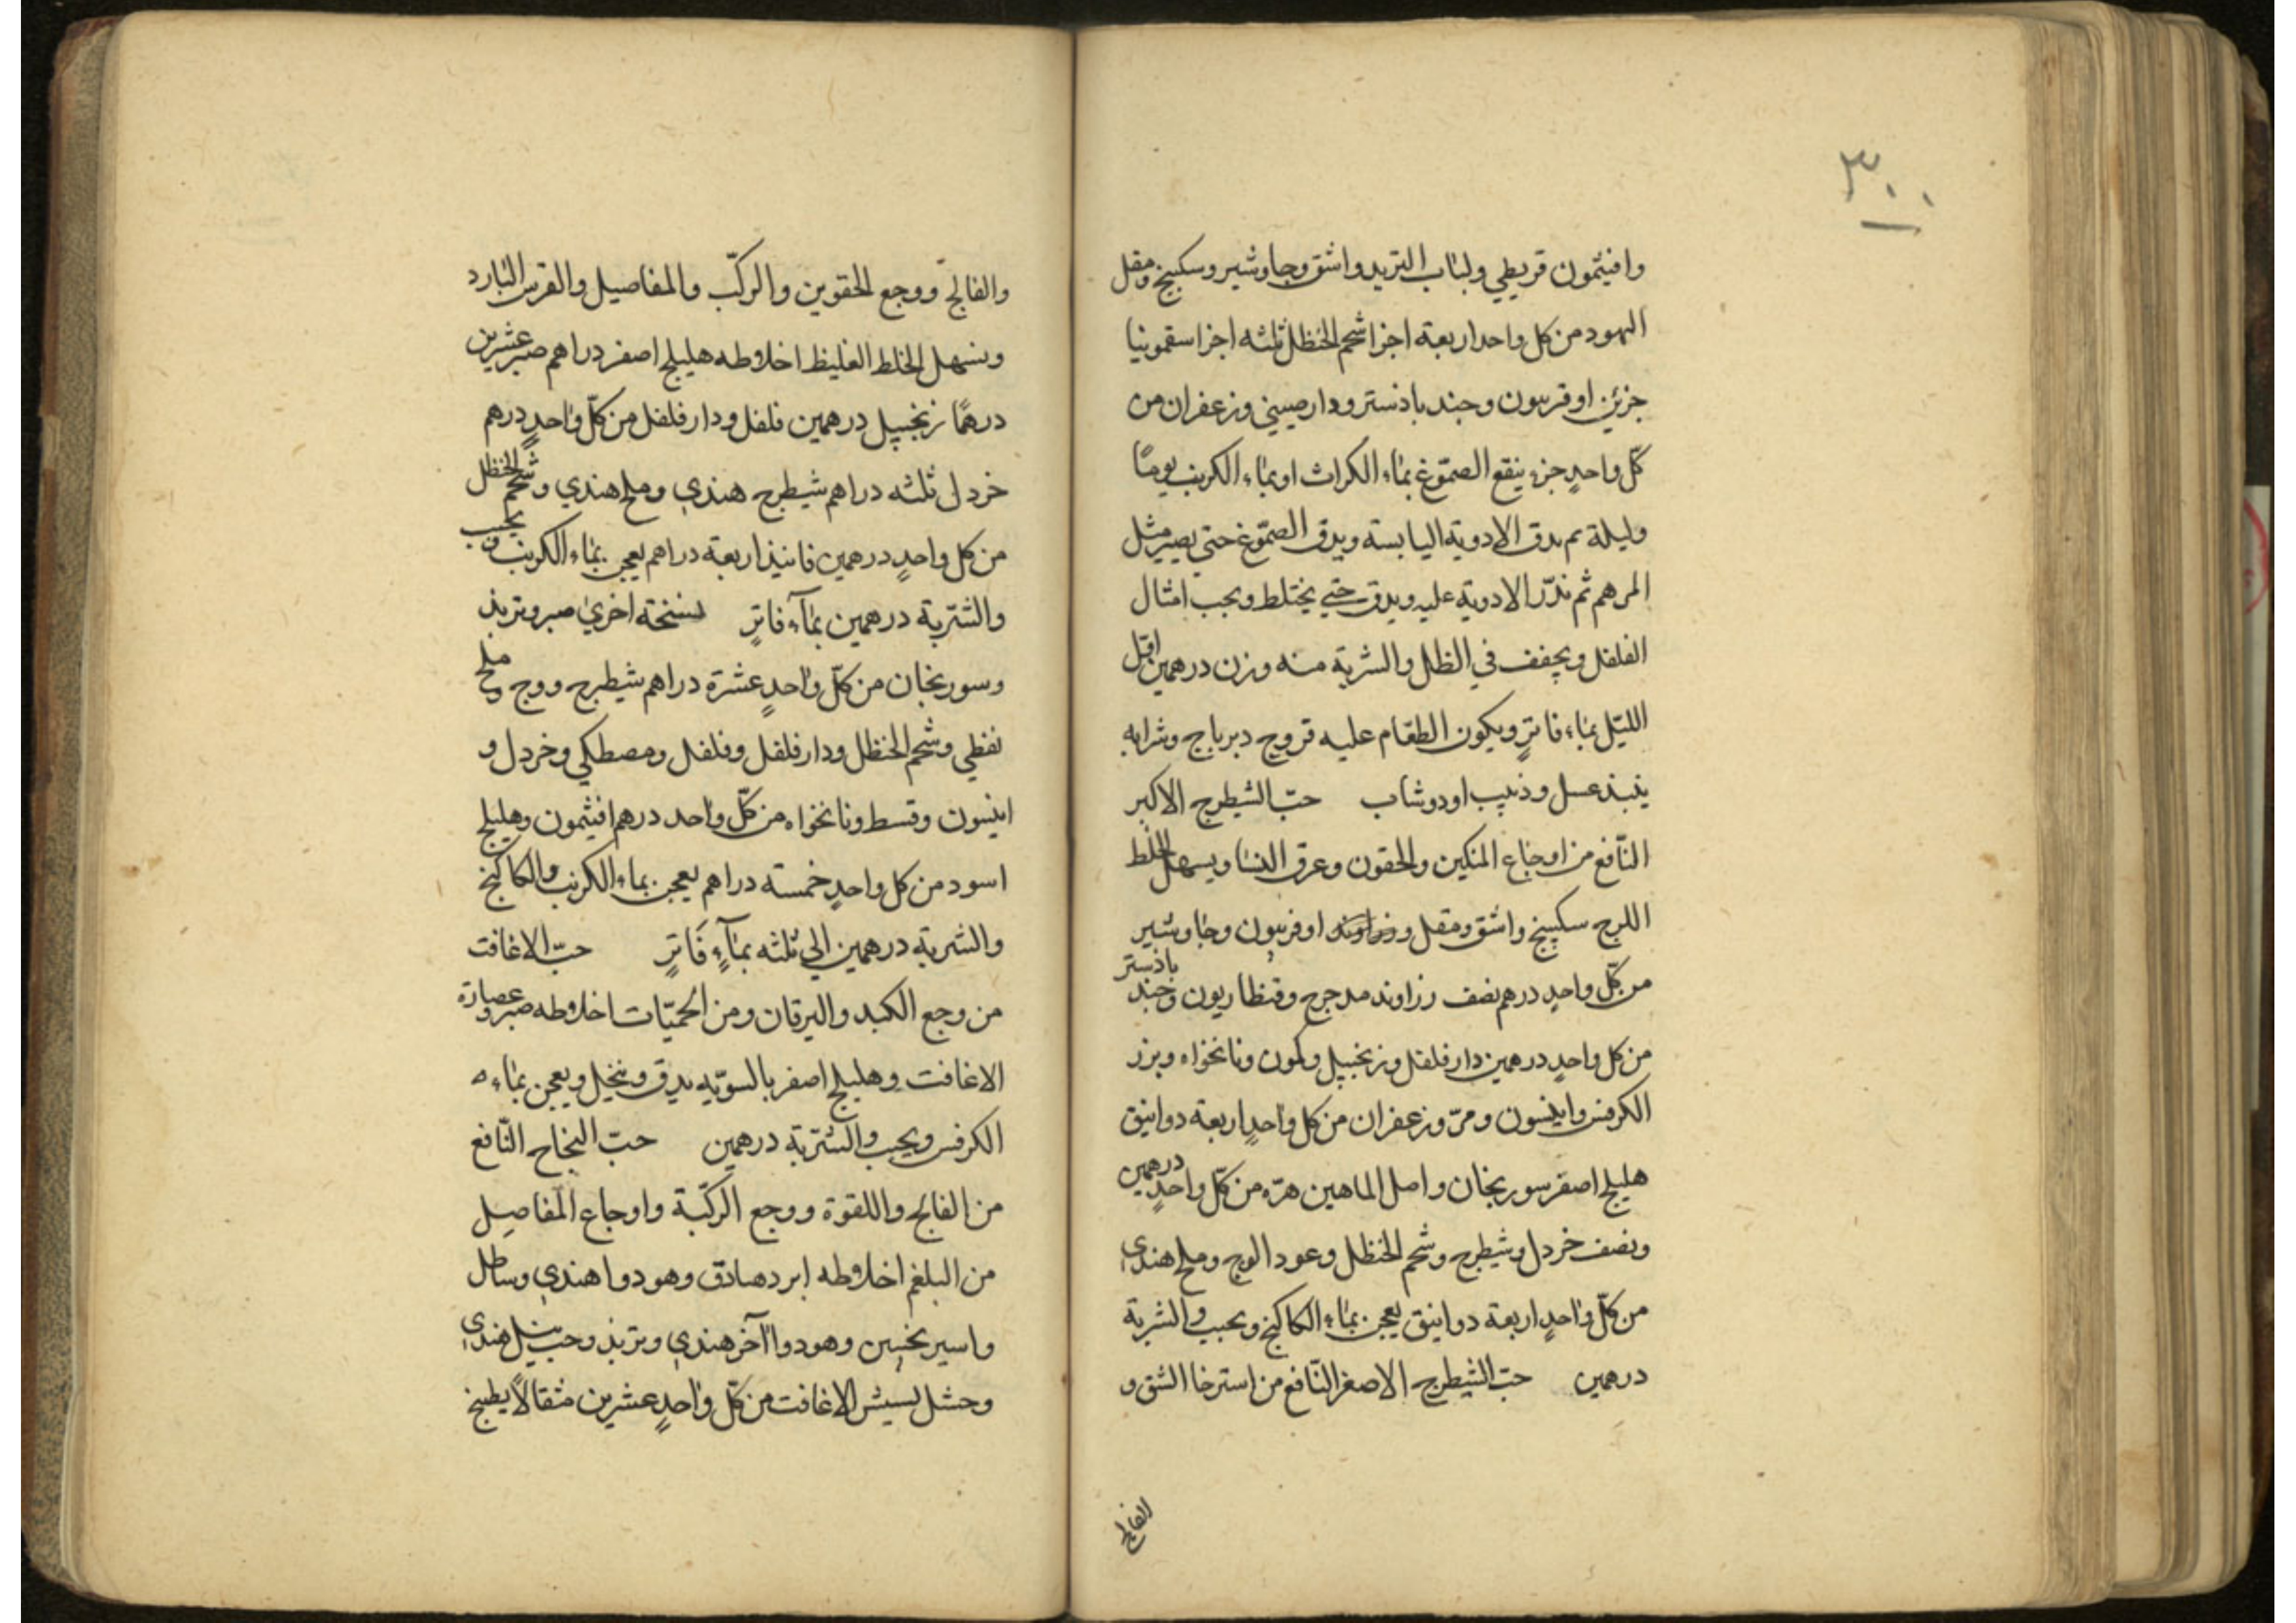 ٣٠٠
وافيتمون قريطي ولباب التربد واشق وجاوشير وسكبينج ومقل
اليهود من كل واحد اربعة اجزا شحم الحنظل ثلثه اجزا سقمونيا
جزئين اوفربيون وجندبادستر ودارصيني وزعفران من
كلّ واحدٍ جزء ينقع الصمّوغ بماء الكراث او بماء الكرنب يومًا
وليلة ثم يدق الادوية اليابسة ويدق الصمّوغ حتي يصير مثل
المرهم ثم تذرّ الادوية عليه ويدق حتي يختلط ويحبب امثال
الفلفل ويجفف في الظل والشربة منه وزن درهمين اوّل
الليّل بماء فاترٍ ويكون الطعام عليه فروج ديرباج وشرابه
ينبذ عسل وذبيب او دوشاب حبّ الشيطرج الاكبر
النّافع من اوجاع المنكبين والحقون وعرق النسا ويسهل الخلط
اللزج سكبينج واشق ومقل وزراوند اوفربيون وجاوشير
من كلّ واحدٍ درهم نصف رزاوند مدحرج وقنطاريون وجند بادستر
من كل واحدٍ درهمين دارفلفل وزنجبيل وكمون ونانخواه وبزر
الكرفس وانيسون ومرّ وزعفران من كل واحدٍ اربعة دوانيق
هليلج اصفر سورنجان واصل الماهين هرّه من كلّ واحدٍ درهمين
ونصف خردل وشيطرج وشحم الحنظل وعود الوج وملح هندي
من كلّ واحدٍ اربعة دوانيق يعجن بماء الكاكنج ويحبب والشربة
درهمين حبّ الشيطرج الاصغر النّافع من استرخا الشق و
الفالج
والفالج ووجع الحقوين والركبّ والمفاصيل والقرس البارد
ويسهل الخلط الغليظ اخلاطه هليلج اصفر دراهم صبر عشرين
درهمًا زنجبيل درهمين فلفل ودارفلفل من كلّ واحدٍ درهم
خردل ثلثه دراهم شيطرج هندي وملح هندي وشحم الحنظل
من كل واحدٍ درهمين فانيذ اربعة دراهم يعجن بماء الكرنب ويحبب
والشّربة درهمين بمآء فاترٍ نسخته اخري صبر وتربذ
وسورنجان من كلّ واحدٍ عشرة دراهم شيطرج ووج وملح
نفطي وشحم الحنظل ودارفلفل وفلفل ومصطكي وخردل و
انيسون وقسط ونانخواه من كلّ واحد درهم افيثمون وهليلج
اسود من كل واحدٍ خمسته دراهم يعجن بماء الكرنب والكاكنج
والشربة درهمين الي ثلثه بمآءٍ فَاترٍ حبّ الاغافت
من وجع الكبد واليرقان ومن الحميّات اخلاطه صبر وعصارة
الاغافت وهليلج اصفر بالسويّه يدق وينخيل ويعجن بماء ه
الكرفس ويحبب والشّربة درهمين حبّ النجاح النّافع
من الفالج واللقوة ووجع الركبّة واوجاع المفاصيل
من البلغم اخلاطه ابردهادق وهو دوا هندي وساطل
واسيرنخسين وهو دوا آخر هندي وتربذ وحب نيل هندي
وحشل لسيش الاغافت من كلّ واحدٍ عشرين مثقالًا يطبخ